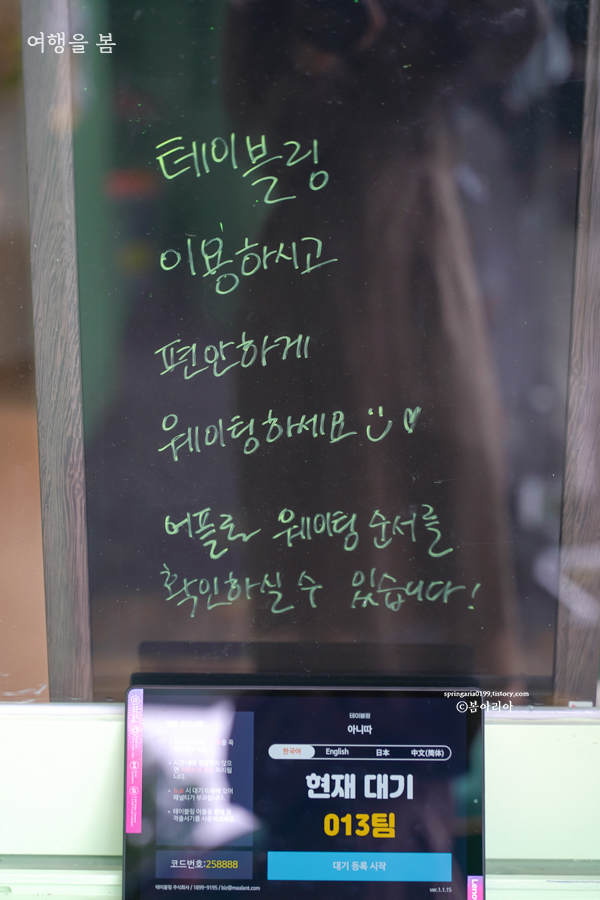 여행을 봄
테이블링
이용하시고
편안하게
웨이팅하세요
어플로 웨이팅 순서를
확인하실 수 있습니다!
springaria0199.tistory.com
©봄아리아
테이블링
아니따
한국어 English 日本 中文(简体)
현재 대기
013팀
코드번호:258888
대기 등록 시작
테이블링 주식회사 / 1899-9195 / biz@mealant.com
ver.1.1.15
Leno